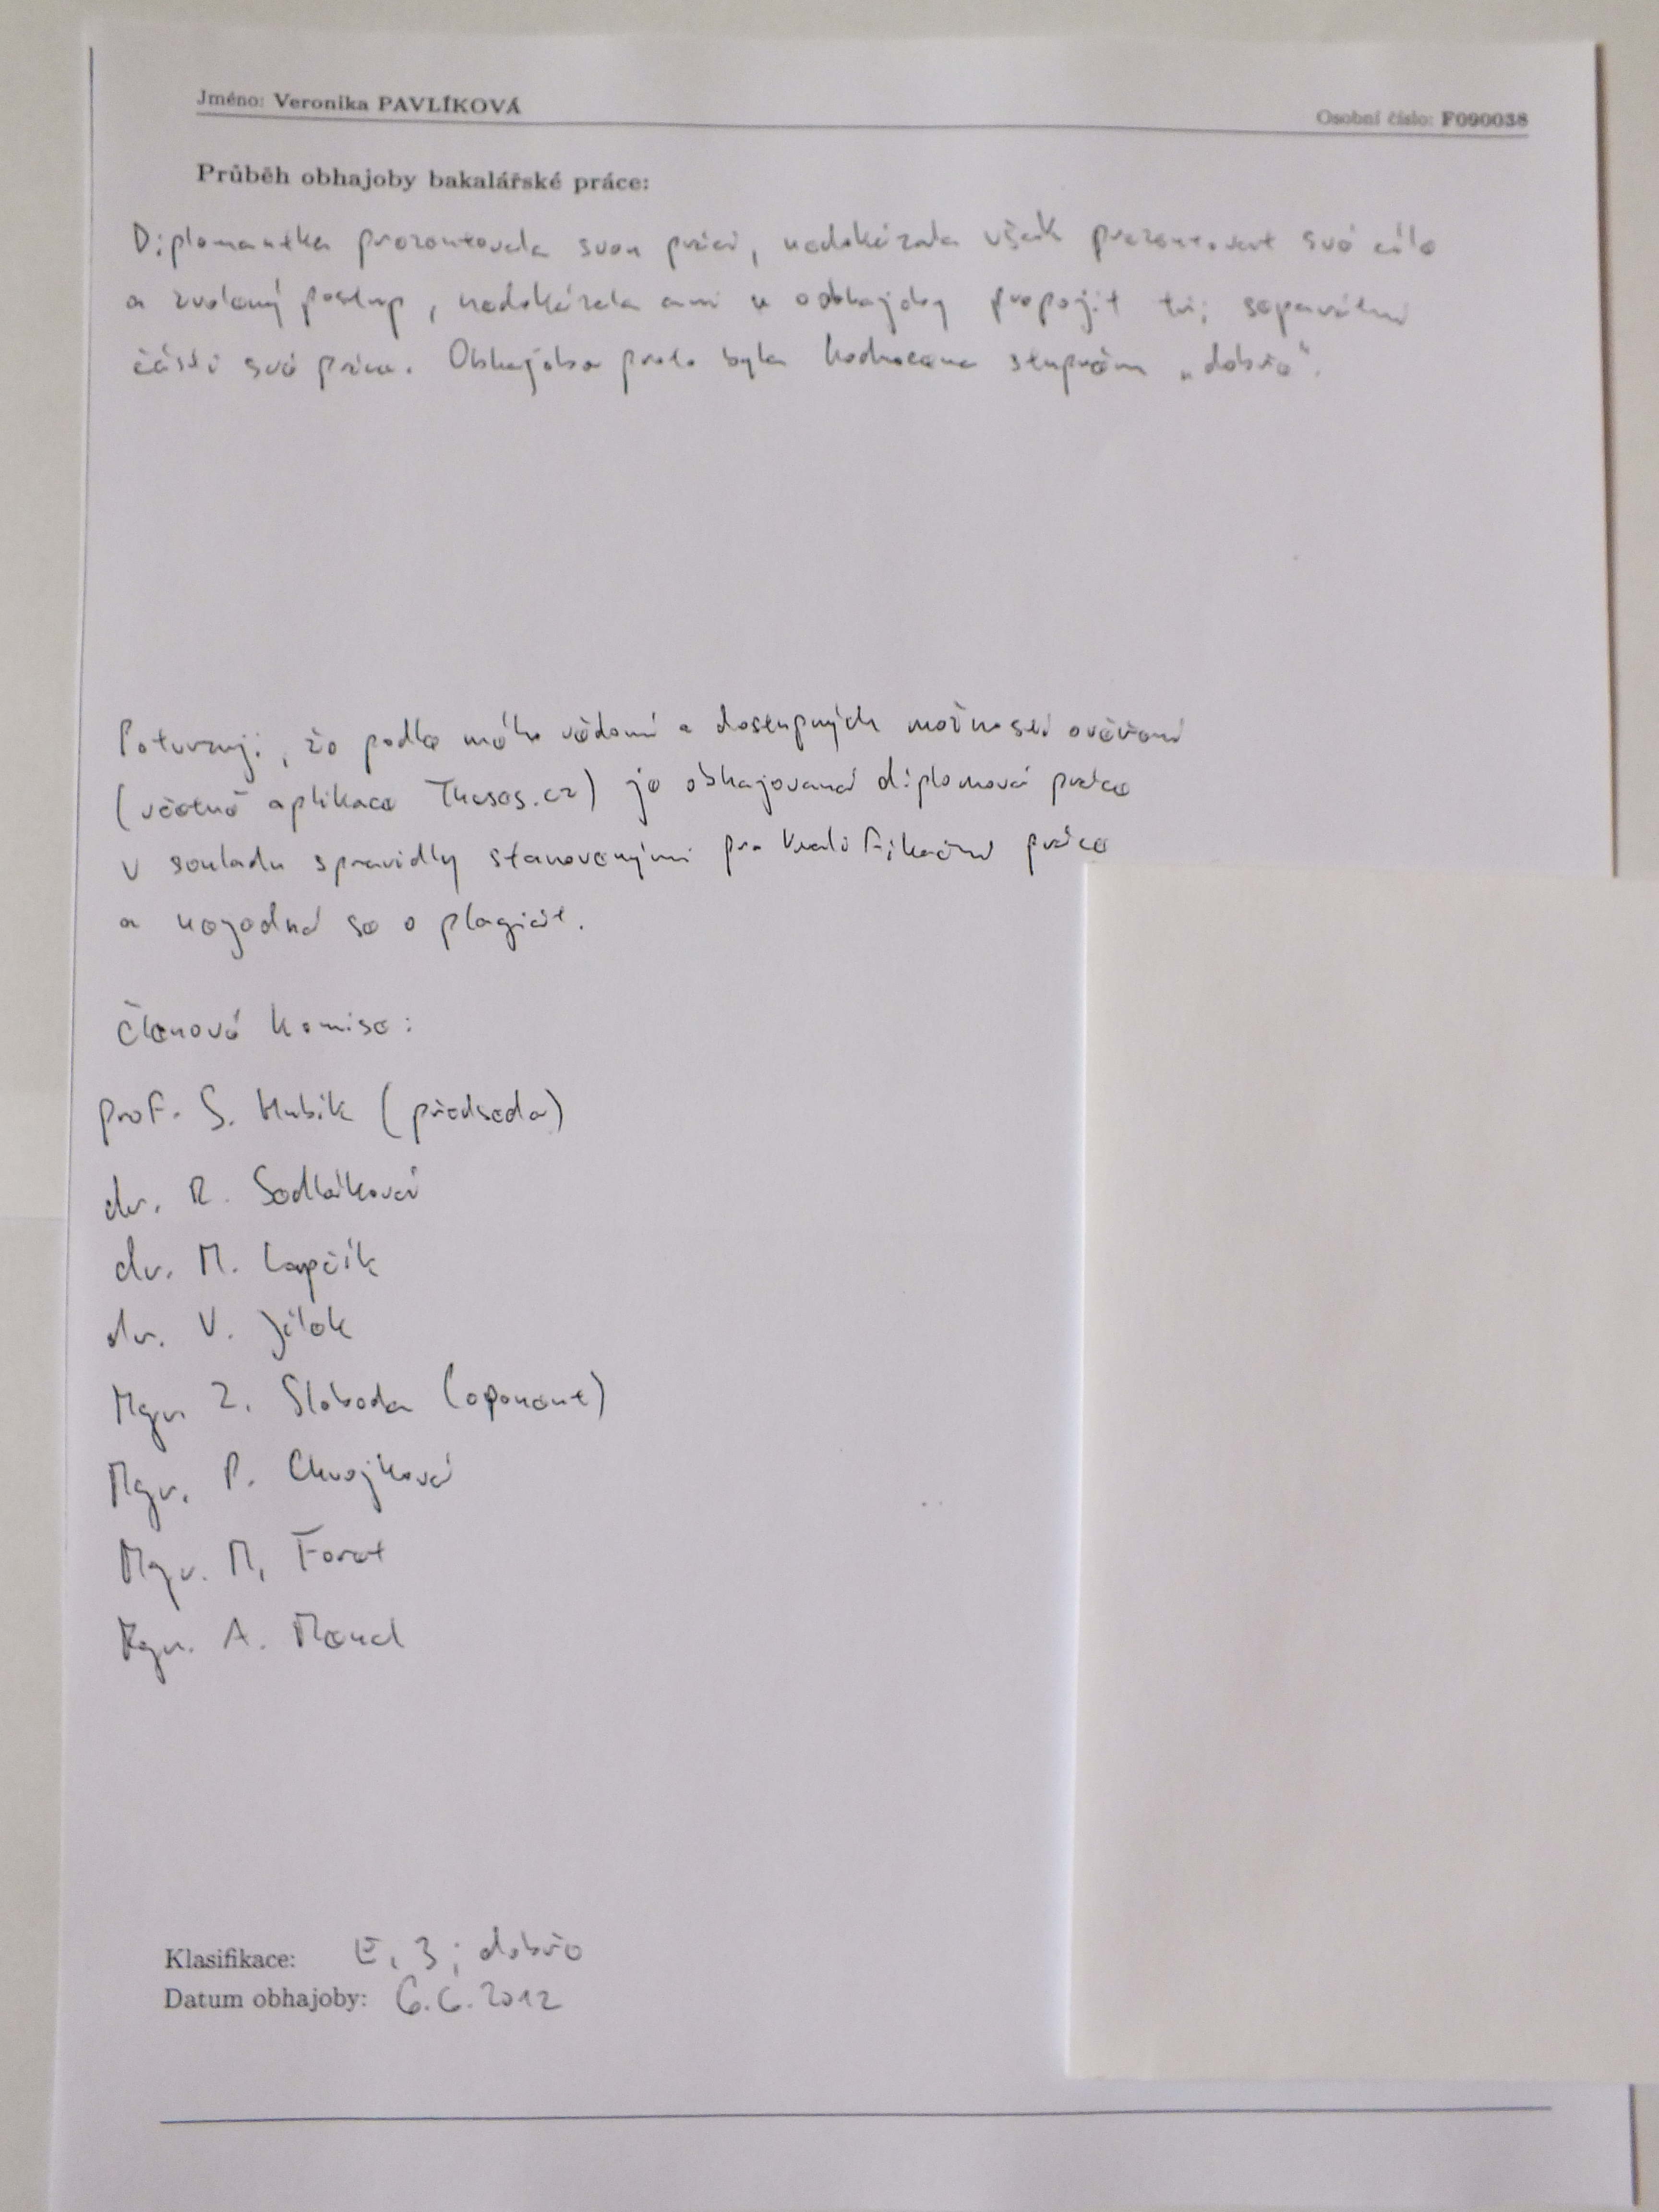 Jméno: Veronika PAVLÍKOVÁ
Osobní číslo: F090038
Průběh obhajoby bakalářské práce:
Diplomantka prezentovala svou práci, nedokázala však prezentovat své cíle
a zvolený postup, nedokázala ani u obhajoby propojit tři separátní
části své práce. Obhajoba proto byla hodnocena stupněm „dobře“.
Potvrzuji, že podle mého vědomí a dostupných možností ověření
(včetně aplikace Theses.cz) je obhajovaná diplomová práce
v souladu s pravidly stanovenými pro kvalifikační práce
a nejedná se o plagiát.
Členové komise:
prof. S. Hubík (předseda)
dr. R. Sedláková
dr. M. Lapčík
dr. V. Jílek
Mgr. Z. Sloboda (oponent)
Mgr. P. Chvojková
Mgr. M. Foret
Mgr. A. Mencl
Klasifikace: E, 3; dobře
Datum obhajoby: 6.6.2012